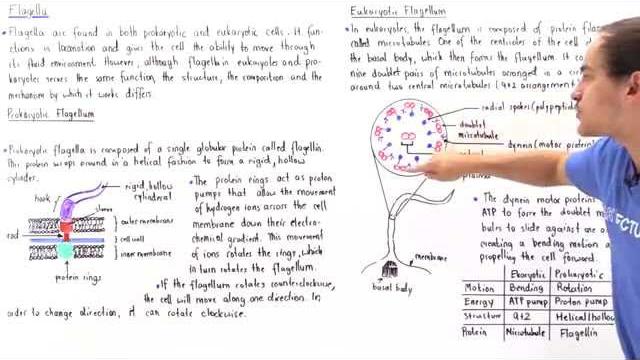 Flagella
• Flagella are found in both prokaryotic and eukaryotic cells. It func-
tions in locomotion and gives the cell the ability to move through
its fluid environment. However, although flagella in eukaryotes and pro-
karyotes serves the same function, the structure, the composition and the
mechanism by which it works differs.
Prokaryotic Flagellum
• Prokaryotic flagella is composed of a single globular protein called flagellin.
This protein wraps around in a helical fashion to form a rigid, hollow
cylinder.
hook
rigid, hollow
cylindrical
outer membrane
rod
cell wall
inner membrane
protein rings
• The protein rings act as proton
pumps that allow the movement
of hydrogen ions across the cell
membrane down their electro-
chemical gradient. This movement
of ions rotates the rings, which
in turn rotates the flagellum.
• If the flagellum rotates counterclockwise,
the cell will move along one direction. In
order to change direction, it can rotate clockwise.
Eukaryotic Flagellum
• In eukaryotes, the flagellum is composed of protein
called microtubules. One of the centrioles of the cell
the basal body, which then forms the flagellum. It
nine doublet pairs of microtubules arranged in a
around two central microtubules (9+2 arrangement)
radial spokes (polypeptide
doublet
microtubule
dynein (motor protein)
basal body
membrane
• The dynein motor proteins
ATP to force the doublet
bules to slide against one
creating a bending motion
propelling the cell forward.
Eukaryotic Prokaryotic
Motion Bending Rotation
Energy ATP pump Proton pump
Structure 9+2 Helical/hollow
Protein Microtubule Flagellin